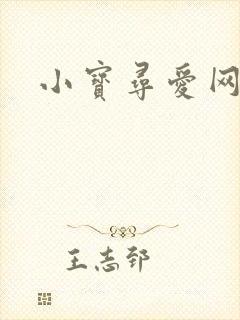 小寶尋愛网
王志郅